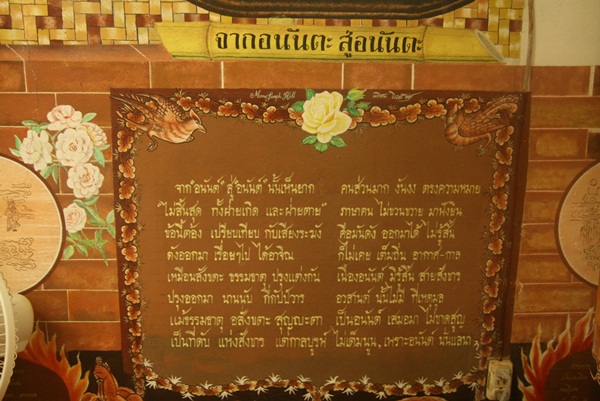 จากอนันตะ สู่อนันตะ
จาก"อนันต์" สู่"อนันต์" นั้นเห็นยาก คนส่วนมาก งันงง ตรงความหมาย
"ไม่สิ้นสุด ทั้งฝ่ายเกิด และฝ่ายตาย" ภาษาคน ไม่ขวนขวาย มาฟังยิน
ข้อนี้ต้อง เปรียบเทียบ กับเสียงระฆัง คือมันดัง ออกมาได้ ไม่รู้สิ้น
ดังออกมา เรื่อยๆไป ได้อาจิณ ก็ไม่เคย เต็มถิ่น อากาศ-กาล
เหมือนสังขตะ ธรรมธาตุ ปรุงแต่งกัน เนื่องอนันต์ มิรู้สิ้น สายสังขาร
ปรุงออกมา นานนับ กี่กัปป์วาร อวสานต์ นั้นไม่มี ที่เหตุมูล
แม้ธรรมธาตุ อสังขตะ สุญญะตา เป็นอนันต์ เสมอมา ไม่ขาดสูญ
เป็นที่ดับ แห่งสังขาร แต่กาลบูรพ์ ไม่เต็มนูน, เพราะอนันต์ นั่นแลนา